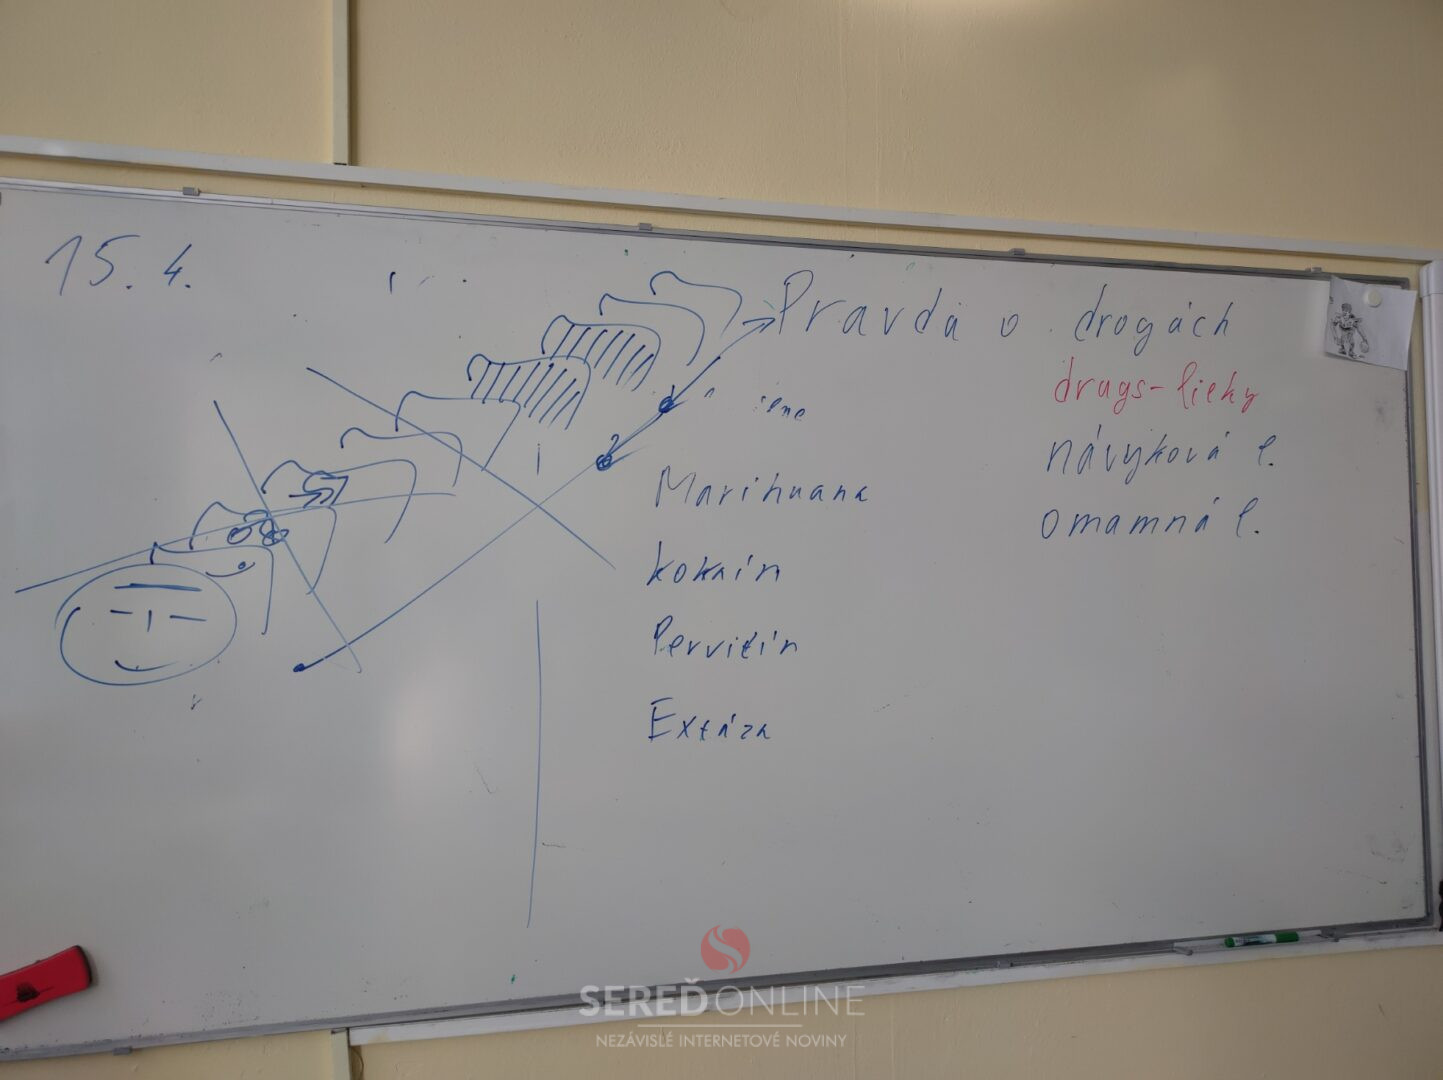 15.4.
Pravda o drogách
drugs-lieky
návyková l.
omamná l.
1
2
Marihuana
kokaín
Pervitín
Extáza
SEREĎONLINE
NEZÁVISLÉ INTERNETOVÉ NOVINY